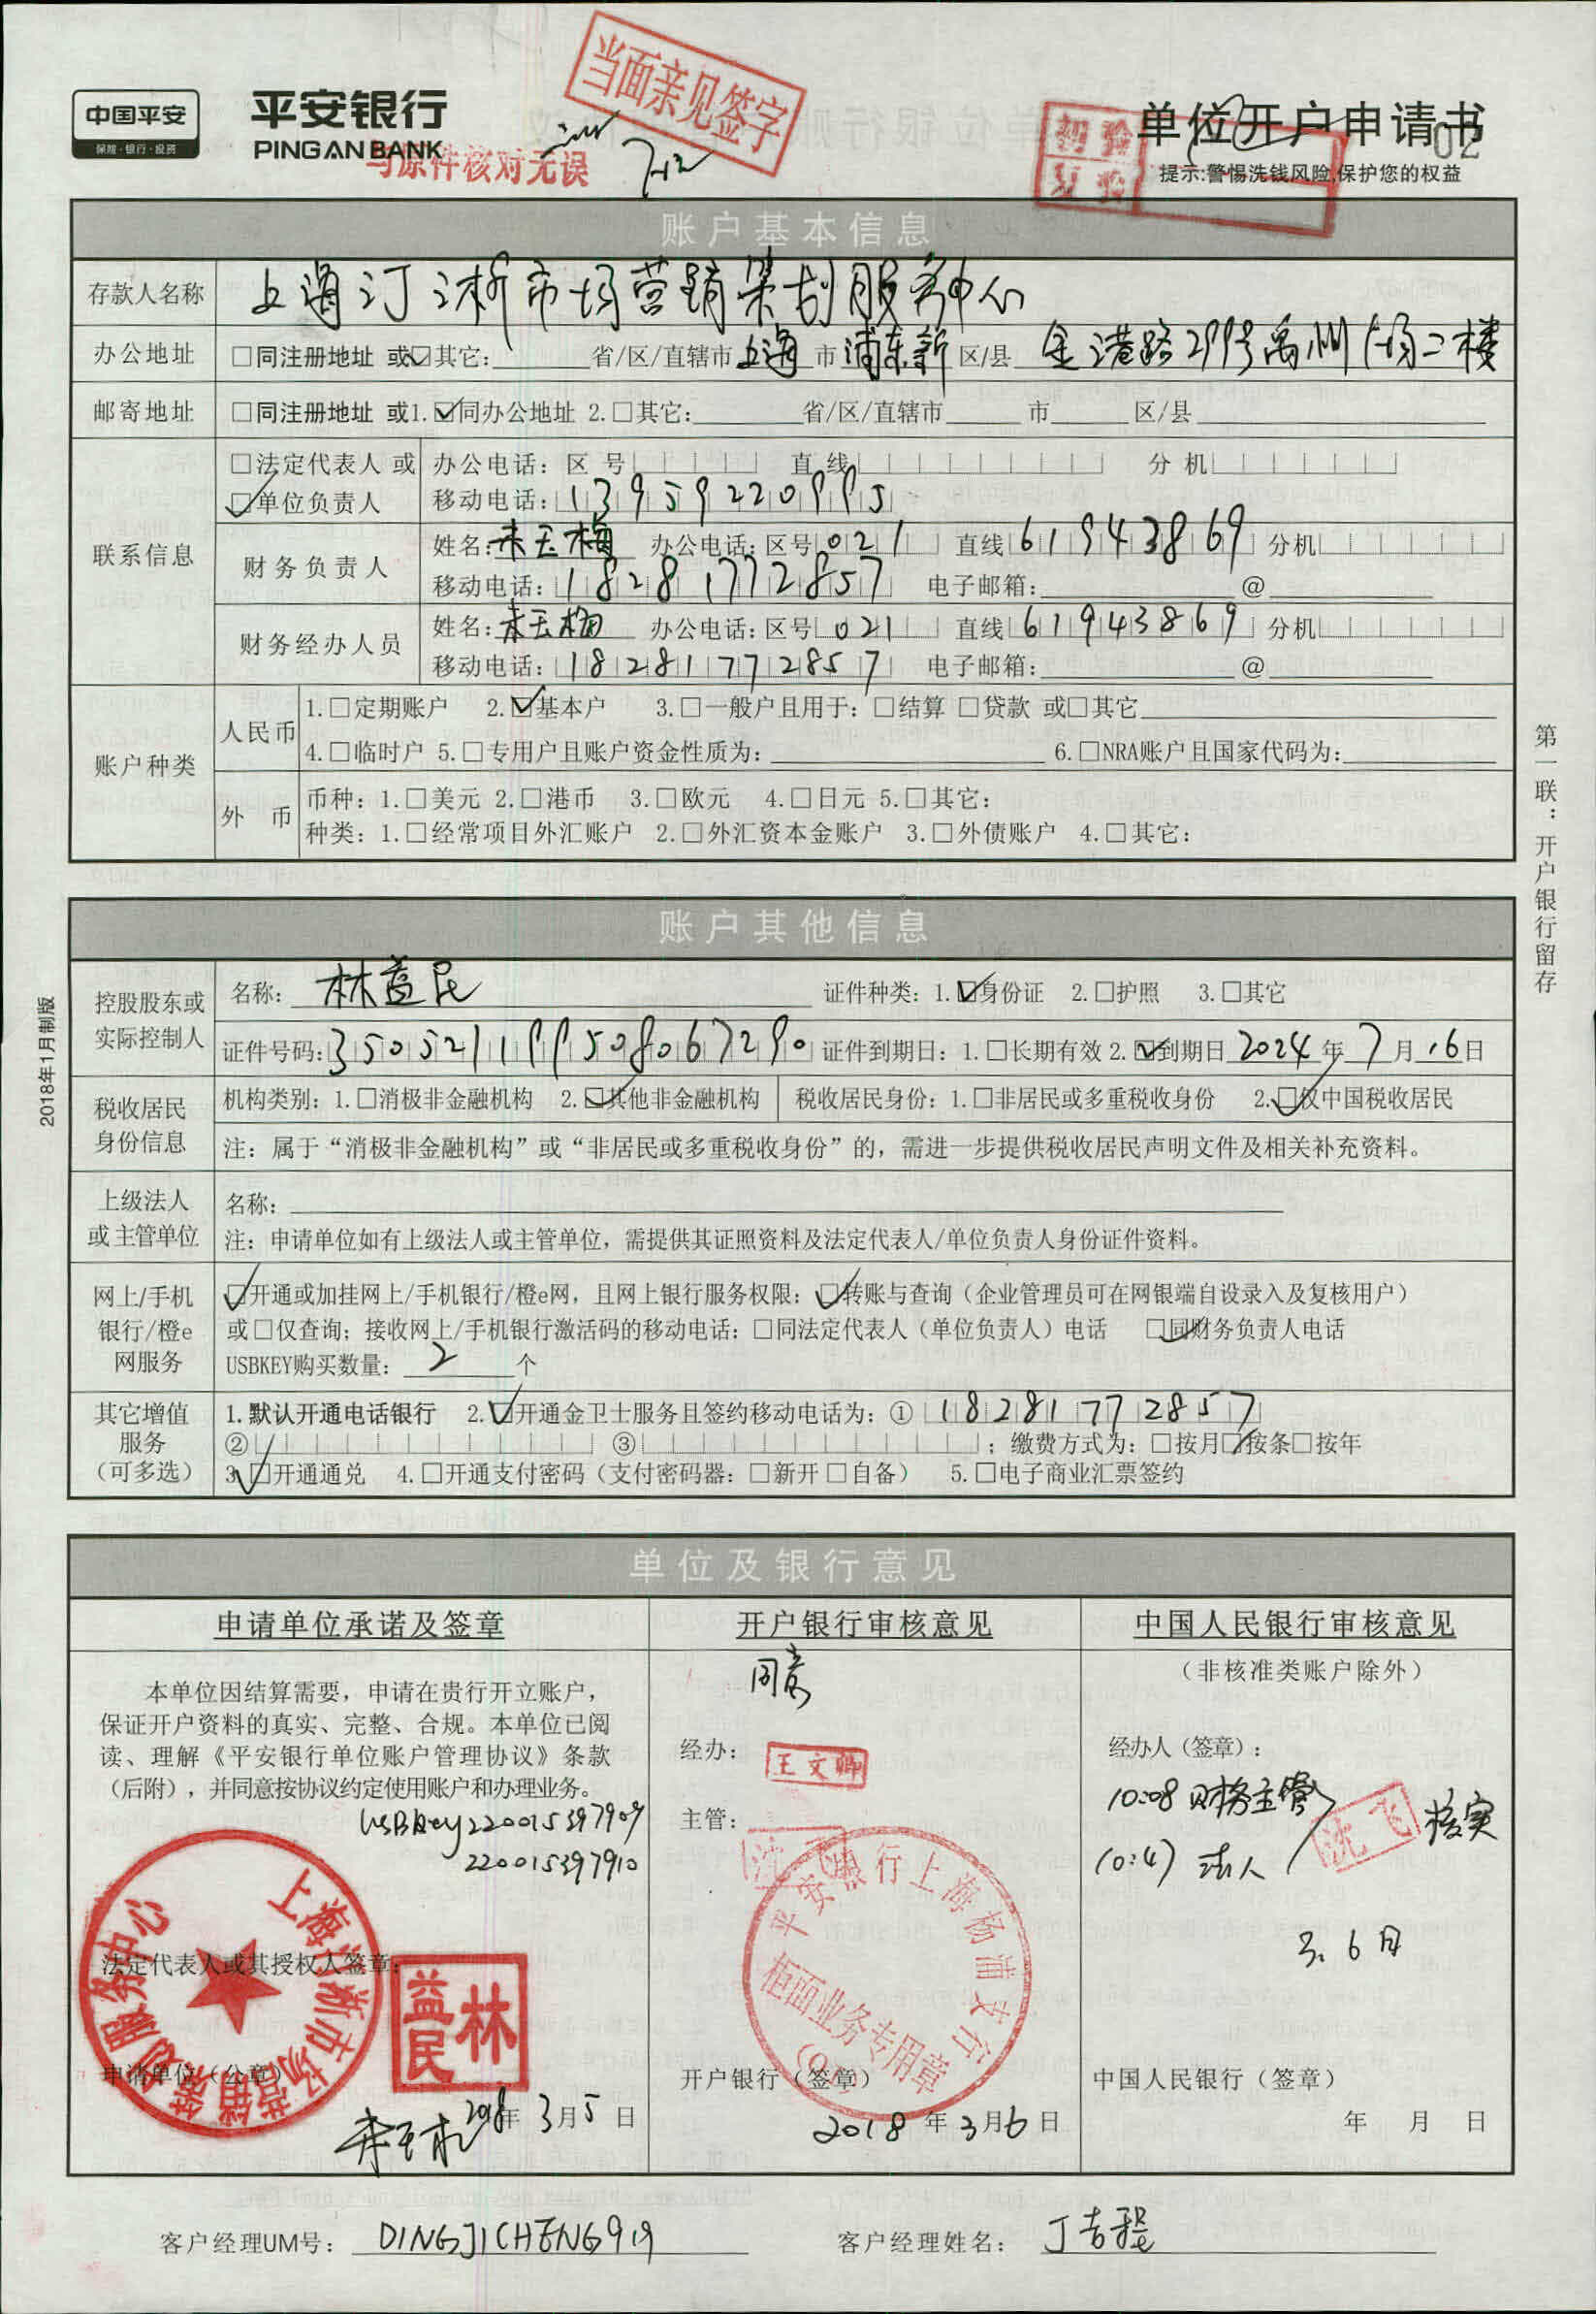 中国平安
保险·银行·投资
平安银行
PINGAN BANK
当面亲见签字
与原件核对无误
单位开户申请书
02
提示:警惕洗钱风险,保护您的权益
账户基本信息
存款人名称 上海汀沭市场营销策划服务中心
办公地址 □同注册地址 或☑其它: 省/区/直辖市 上海 市 浦东新 区/县 金港路299号禹州广场二楼
邮寄地址 □同注册地址 或1.☑同办公地址 2.□其它: 省/区/直辖市 市 区/县
联系信息
□法定代表人 或 办公电话: 区号 直线 分机
☑单位负责人 移动电话: 13959220995
财务负责人 姓名: 玉梅 办公电话: 区号 021 直线 61943869 分机
移动电话: 18281772857 电子邮箱: @
财务经办人员 姓名: 玉梅 办公电话: 区号 021 直线 61943869 分机
移动电话: 18281772857 电子邮箱: @
账户种类
人民币 1.□定期账户 2.☑基本户 3.□一般户且用于: □结算 □贷款 或□其它
4.□临时户 5.□专用户且账户资金性质为: 6.□NRA账户且国家代码为:
外币 币种: 1.□美元 2.□港币 3.□欧元 4.□日元 5.□其它:
种类: 1.□经常项目外汇账户 2.□外汇资本金账户 3.□外债账户 4.□其它:
第一联:开户银行留存
2018年1月制版
账户其他信息
控股股东或实际控制人 名称: 林益民 证件种类: 1.☑身份证 2.□护照 3.□其它
证件号码: 350521199508067290 证件到期日: 1.□长期有效 2.☑到期日 2024 年 7 月 16 日
税收居民身份信息 机构类别: 1.□消极非金融机构 2.☑其他非金融机构 税收居民身份: 1.□非居民或多重税收身份 2.☑仅中国税收居民
注: 属于“消极非金融机构”或“非居民或多重税收身份”的, 需进一步提供税收居民声明文件及相关补充资料。
上级法人或主管单位 名称:
注: 申请单位如有上级法人或主管单位, 需提供其证照资料及法定代表人/单位负责人身份证件资料。
网上/手机银行/橙e网服务 ☑开通或加挂网上/手机银行/橙e网, 且网上银行服务权限: ☑转账与查询（企业管理员可在网银端自设录入及复核用户）
或□仅查询; 接收网上/手机银行激活码的移动电话: □同法定代表人（单位负责人）电话 ☑同财务负责人电话
USBKEY购买数量: 2 个
其它增值服务（可多选） 1.默认开通电话银行 2.☑开通金卫士服务且签约移动电话为: ① 18281772857
② ③ ; 缴费方式为: □按月☑按条□按年
3.☑开通通兑 4.□开通支付密码（支付密码器: □新开 □自备） 5.□电子商业汇票签约
单位及银行意见
申请单位承诺及签章
本单位因结算需要, 申请在贵行开立账户,
保证开户资料的真实、完整、合规。本单位已阅
读、理解《平安银行单位账户管理协议》条款
（后附）, 并同意按协议约定使用账户和办理业务。
USBkey220015397909
220015397910
法定代表人或其授权人签章:
林益民
申请单位（公章）
2018年 3月 5 日
开户银行审核意见
同意
经办: 王文卿
主管:
平安银行上海杨浦支行
柜面业务专用章
开户银行（签章）
2018 年 3 月 6 日
中国人民银行审核意见
（非核准类账户除外）
经办人（签章）:
10:08 财务主管
10:47 法人
沈飞 核实
3. 6 日
中国人民银行（签章）
年 月 日
客户经理UM号: DINGJICHENG919
客户经理姓名: 丁吉程